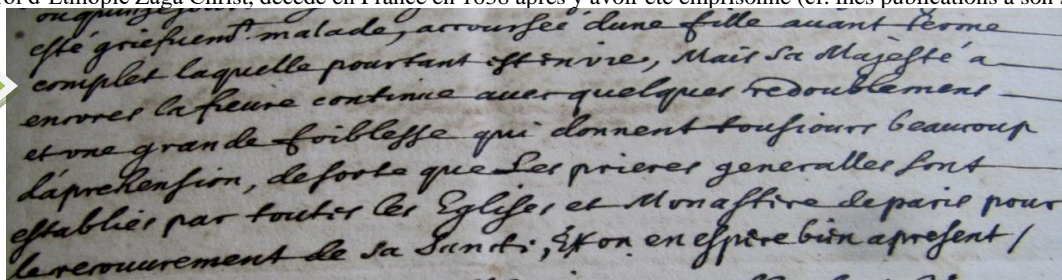 roi d'Ethiopie Zaga Christ, décédé en France en 1638 après y avoir été emprisonné (cf. mes publications à son
esté griefuemt malade, accouchée dune fille auant terme
complet laquelle pourtant est en vie, Mais Sa Majesté a
encores la fieure continue auec quelques redoublemens
et vne grande foiblesse qui donnent tousiours beaucoup
dáprehension, desorte que Les prieres generalles sont
establies par toutes les Eglises et Monastere deparis pour
le recouurement de sa Santé; Et on en espere bien apresent /